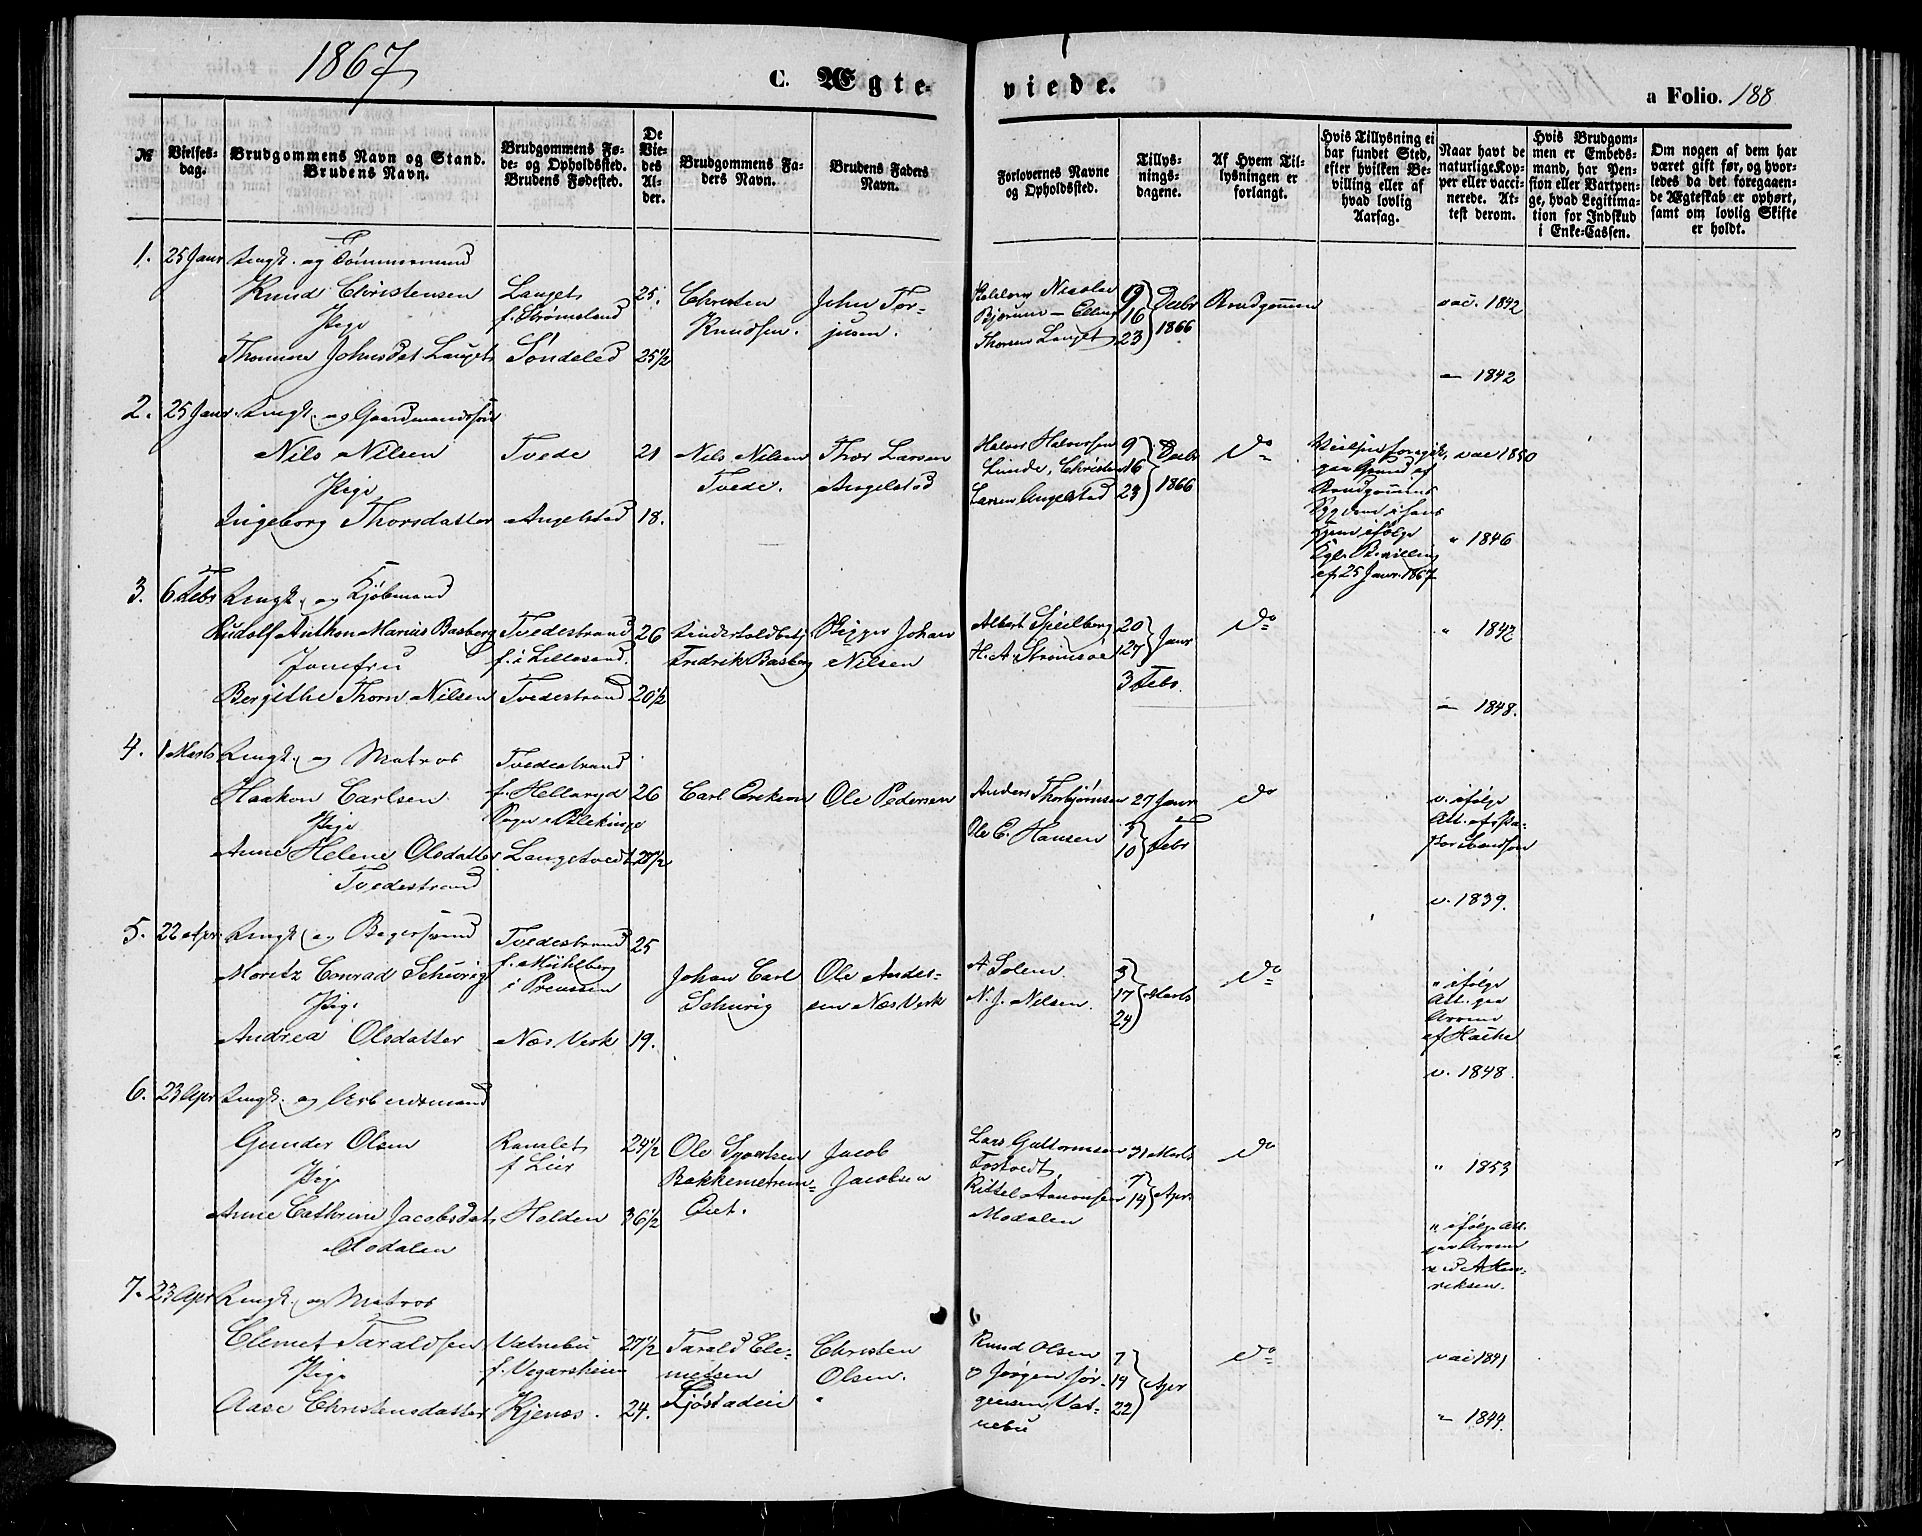 1867
C. Ægte-
viede.
a Folio. 188
№
Vielses-
dag.
Brudgommens Navn og Stand.
Brudens Navn.
Brudgommens Fø-
de- og Opholdssted.
Brudens Fødested.
De
Vie-
des
Al-
der.
Brudgommens Fa-
ders Navn.
Brudens Faders
Navn.
Forlovernes Navne
og Opholdssted.
Tillys-
nings-
dagene.
Af Hvem Til-
lysningen er
forlangt.
Hvis Tillysning ei
har fundet Sted,
efter hvilken Be-
villing eller af
hvad lovlig
Aarsag.
Naar havt de
naturlige Kop-
per eller vacci-
nerede. At-
test derom.
Hvis Brudgom-
men er Embeds-
mand, har Pen-
sion eller Vartpen-
ge, hvad Legitima-
tion for Indskud
i Enke-Cassen.
Om nogen af dem har
været gift før, og hvor-
ledes da det foregaaen-
de Ægteskab er ophørt,
samt om lovlig Skifte
er holdt.
1. 25 Janr Ungk. og Tømmermand
Knud Christensen
Pige
Thomine Johnsdat Langets
Langets
f. Strømsland
Søndeled
25.
25 1/2
Christen
Knudsen.
John Tor-
jusen.
Nicolai
Bjorum - Elling
Thorsen Langet
9
16
23
Decbr
1866
Brudgommen
vac. 1842
- 1842
2. 25 Janr. Ungk. og Gaardmandssøn
Nils Nilsen
Pige
Ingeborg Thorsdatter
Tvede
Angelstad
21
18.
Nils Nilsen
Tvede.
Thor Larsen
Angelstad
Halvor Halvorsen
Lunde, Christen
Larsen Angelstad
9
16
23
Decbr
1866
do
Vielsen foregik
paa Grund af
Brudgommens
Sygdom i hans
Hjem ifølge
Kgl. Bevilling
af 25 Janr. 1867
vac 1850
" 1846
3. 6 Febr Ungk. og Kjøbmand
Rudolf Anthon Marius Basberg
Jomfru
Bergithe Thorn Nilsen
Tvedestrand
f. i Lillesand.
Tvedestrand
26
20 1/2
Fredrik Basberg
Johan
Nilsen
Albert Speilberg
H. A. Strømsøe
20
27
Janr
3 Febr.
do
" 1842
- 1848.
4. 1 Marts Ungk. og Matros
Haakon Carlsen
Pige
Anne Helene Olsdatter
Tvedestrand
Tvedestrand
f. Hellaryd
Sogn i Blekinge
Langetvedt
26
27 1/2
Carl Erikson
Ole Pedersen
Anders Thorbjørnsen
Ole C. Hansen
27 Janr
3
10
Febr
do
v. ifølge
Att. af
v. 1839.
5. 22 Apr. Ungk. og Bagersvend
Moritz Conrad Schurig
Pige
Andrea Olsdatter
Tvedestrand
f. Mühlberg
i Preussen
Næs Verk
25
19.
Johan Carl
Schurig
Ole Ander-
sen Næs Verk
A Solem.
N. J. Nilsen.
3
17
24
Marts
do
" ifølge
Att. paa
Armen
af
v. 1848.
6. 23 Apr Ungk. og Arbeidsmand
Gunder Olsen
Pige
Anne Cathrine Jacobsdat
Modalen
Ramlet
f Lier
Holden
24 1/2
36 1/2
Ole Syvertsen
Jacob
Jacobsen
Lars Guttormsen
Fosvedt,
Kittel Aanonsen
Modalen
31 Marts
7
14
Apr
do
" 1853
" ifølge Att.
paa Armen
ved A Hen-
riksen.
7. 23 Apr Ungk. og Matros
Clemet Taraldsen
Pige
Aase Christensdatter
Vatnebu
f. Vegarsheien
Kjenes.
27 1/2
24.
Tarald Cle-
metsen
Fjøstadeie
Christen
Olsen.
"
Knud Olsen
o Jørgen Jør-
gensen, Vat-
nebu
7
14
22
Apr
do
vac 1841
" 1844.